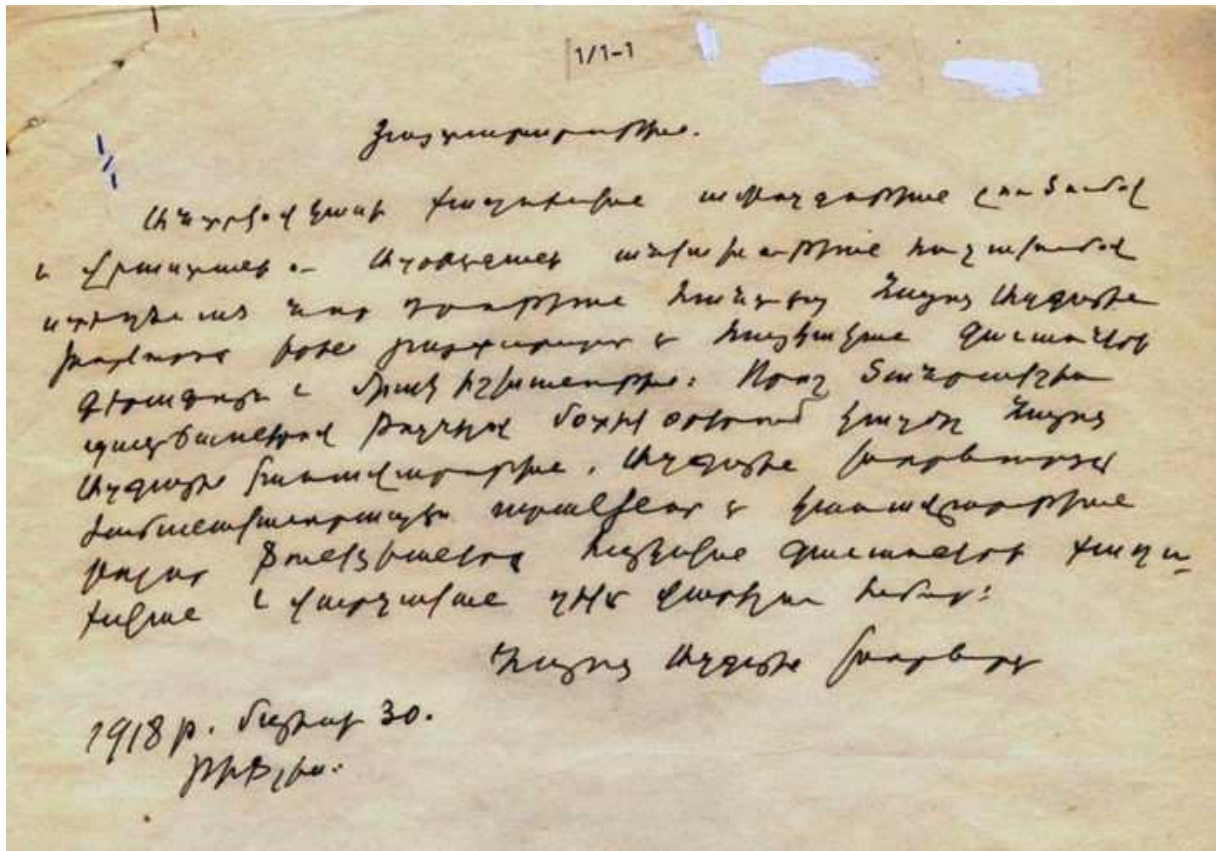 Յայտարարութիւն.
Անդրկովկասի քաղաքական ամբողջութեան լուծումով
և Վրաստանի և Ադրբէջանի անկախութեան հռչակումով
ստեղծուած նոր դրութեան հանդէպ Հայոց Ազգային
Խորհուրդը իրեն յայտարարում է հայկական գաւառների
գերագոյն և միակ իշխանութիւն: Որոշ ծանրակշիռ
պատճառներով թողնելով մօտիկ օրերում կազմել Հայոց
Ազգային կառավարութիւն, Ազգային Խորհուրդը
ժամանակաւորապէս ստանձնում է կառավարութեան
բոլոր ֆունկցիաները հայկական գաւառների քաղա-
քական և վարչական ղեկը վարելու համար:
Հայոց Ազգային Խորհուրդ
1918 թ. մայիսի 30.
Թիֆլիս.
1/1-1